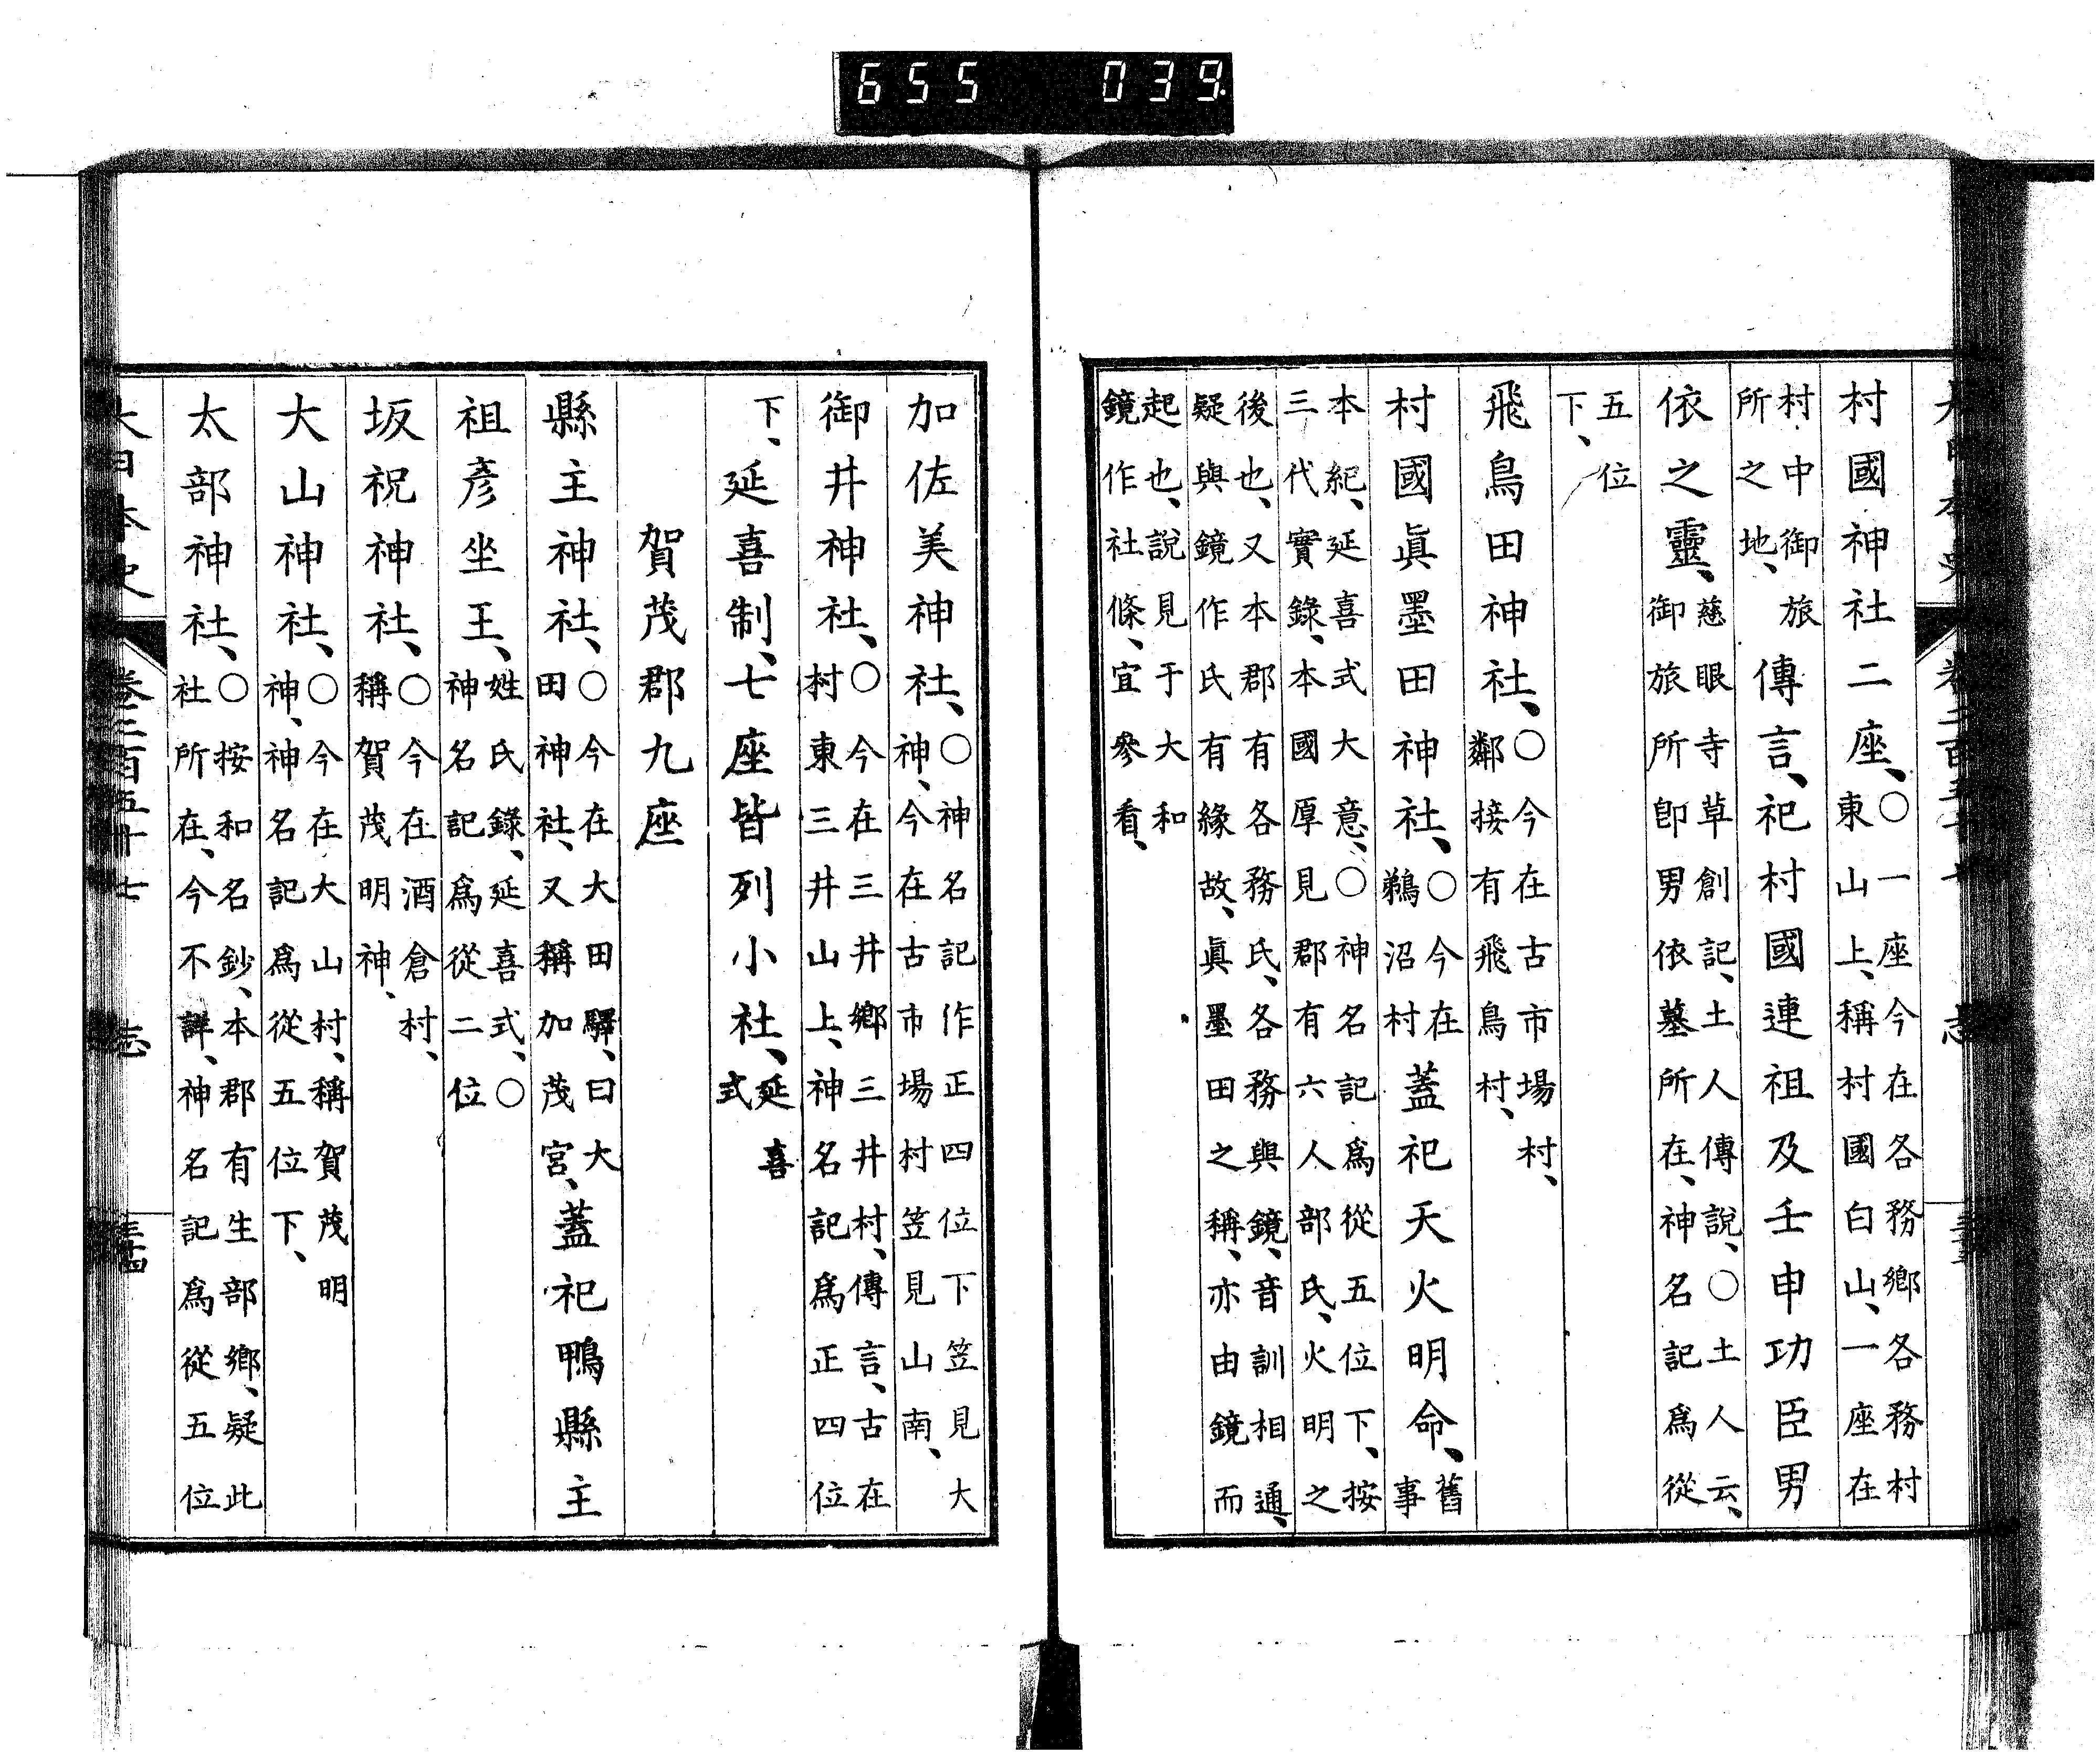 655 039
村國神社二座、〇一座今在各務鄉各務村東山上、稱村國白山、一座在
村中御旅所之地、傳言、祀村國連祖及壬申功臣男
依之靈、慈眼寺草創記、土人傳說、〇土人云、御旅所卽男依墓所在、神名記爲從
五位下、
飛鳥田神社、〇今在古市場村、鄰接有飛鳥村、
村國眞墨田神社、〇今在鵜沼村蓋祀天火明命、舊事
本紀、延喜式大意、〇神名記爲從五位下、按三代實錄、本國厚見郡有六人部氏、火明之
後也、又本郡有各務氏、各務與鏡、音訓相通、疑與鏡作氏有緣故、眞墨田之稱、亦由鏡而
起也、說見于大和鏡作社條、宜參看、
加佐美神社、〇神名記作正四位下笠見大神、今在古市場村笠見山南、
御井神社、〇今在三井鄉三井村、傳言、古在村東三井山上、神名記爲正四位
下、延喜制、七座皆列小社、延喜式
賀茂郡九座
縣主神社、〇今在大田驛、曰大田神社、又稱加茂宮、蓋祀鴨縣主
祖彥坐王、姓氏錄、延喜式、〇神名記爲從二位
坂祝神社、〇今在酒倉村、稱賀茂明神、
大山神社、〇今在大山村、稱賀茂明神、神名記爲從五位下、
太部神社、〇按和名鈔、本郡有生部鄉、疑此社所在、今不詳、神名記爲從五位